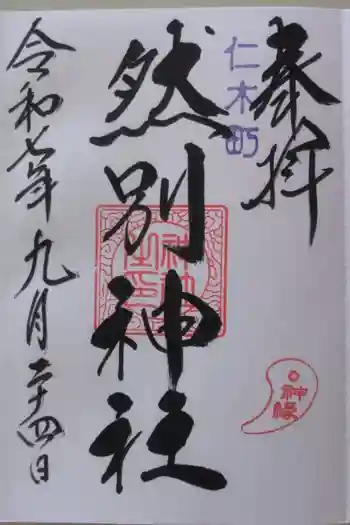 奉拝
仁木町
然別神社
令和七年九月二十四日
神縁